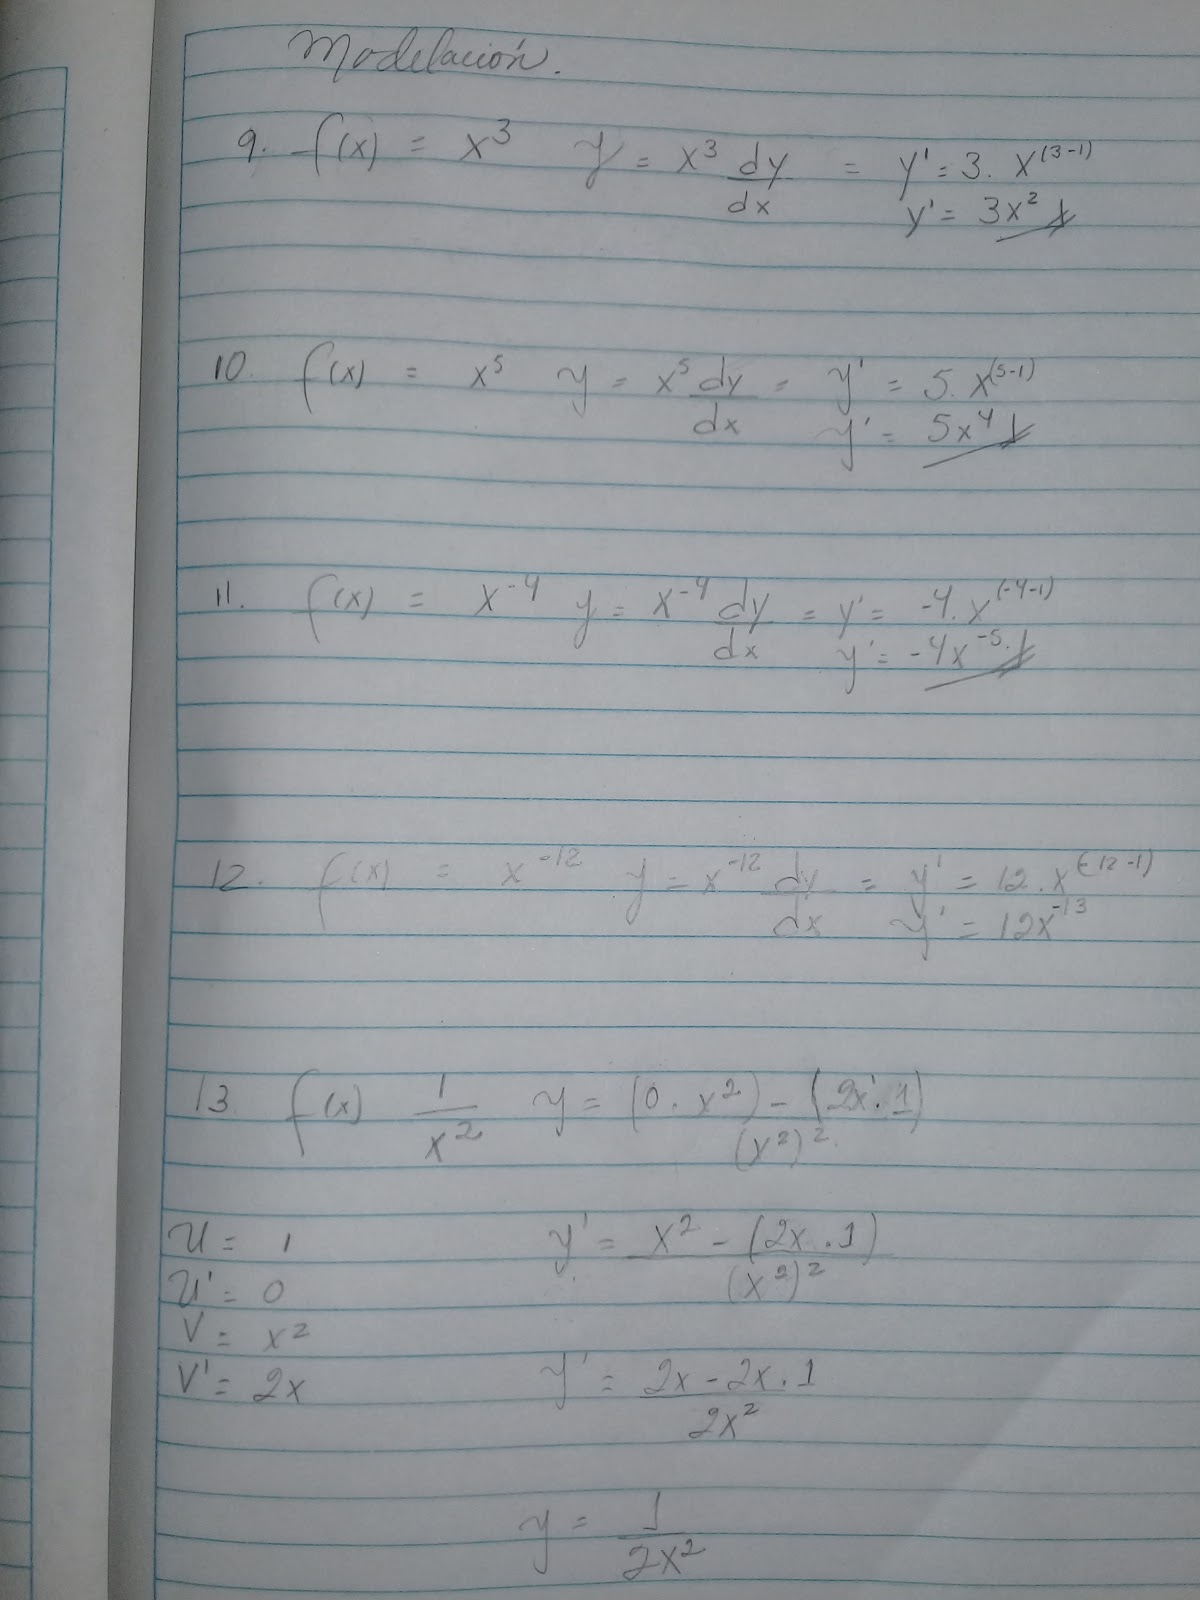 Modelación.
9. f(x) = x³ y = x³ dy/dx = y' = 3. x⁽³⁻¹⁾
y' = 3x²
10. f(x) = x⁵ y = x⁵ dy/dx = y' = 5. x⁽⁵⁻¹⁾
y' = 5x⁴
11. f(x) = x⁻⁴ y = x⁻⁴ dy/dx = y' = -4. x⁽⁻⁴⁻¹⁾
y' = -4x⁻⁵
12. f(x) = x⁻¹² y = x⁻¹² dy/dx = y' = 12. x⁽⁻¹²⁻¹⁾
y' = 12x⁻¹³
13 f(x) 1/x² y = (0. x²) - (2x. 1) / (x²)²
U = 1 y' = x² - (2x . 1) / (x²)²
U' = 0
V = x²
V' = 2x y' = 2x - 2x . 1 / 2x²
y = 1 / 2x²